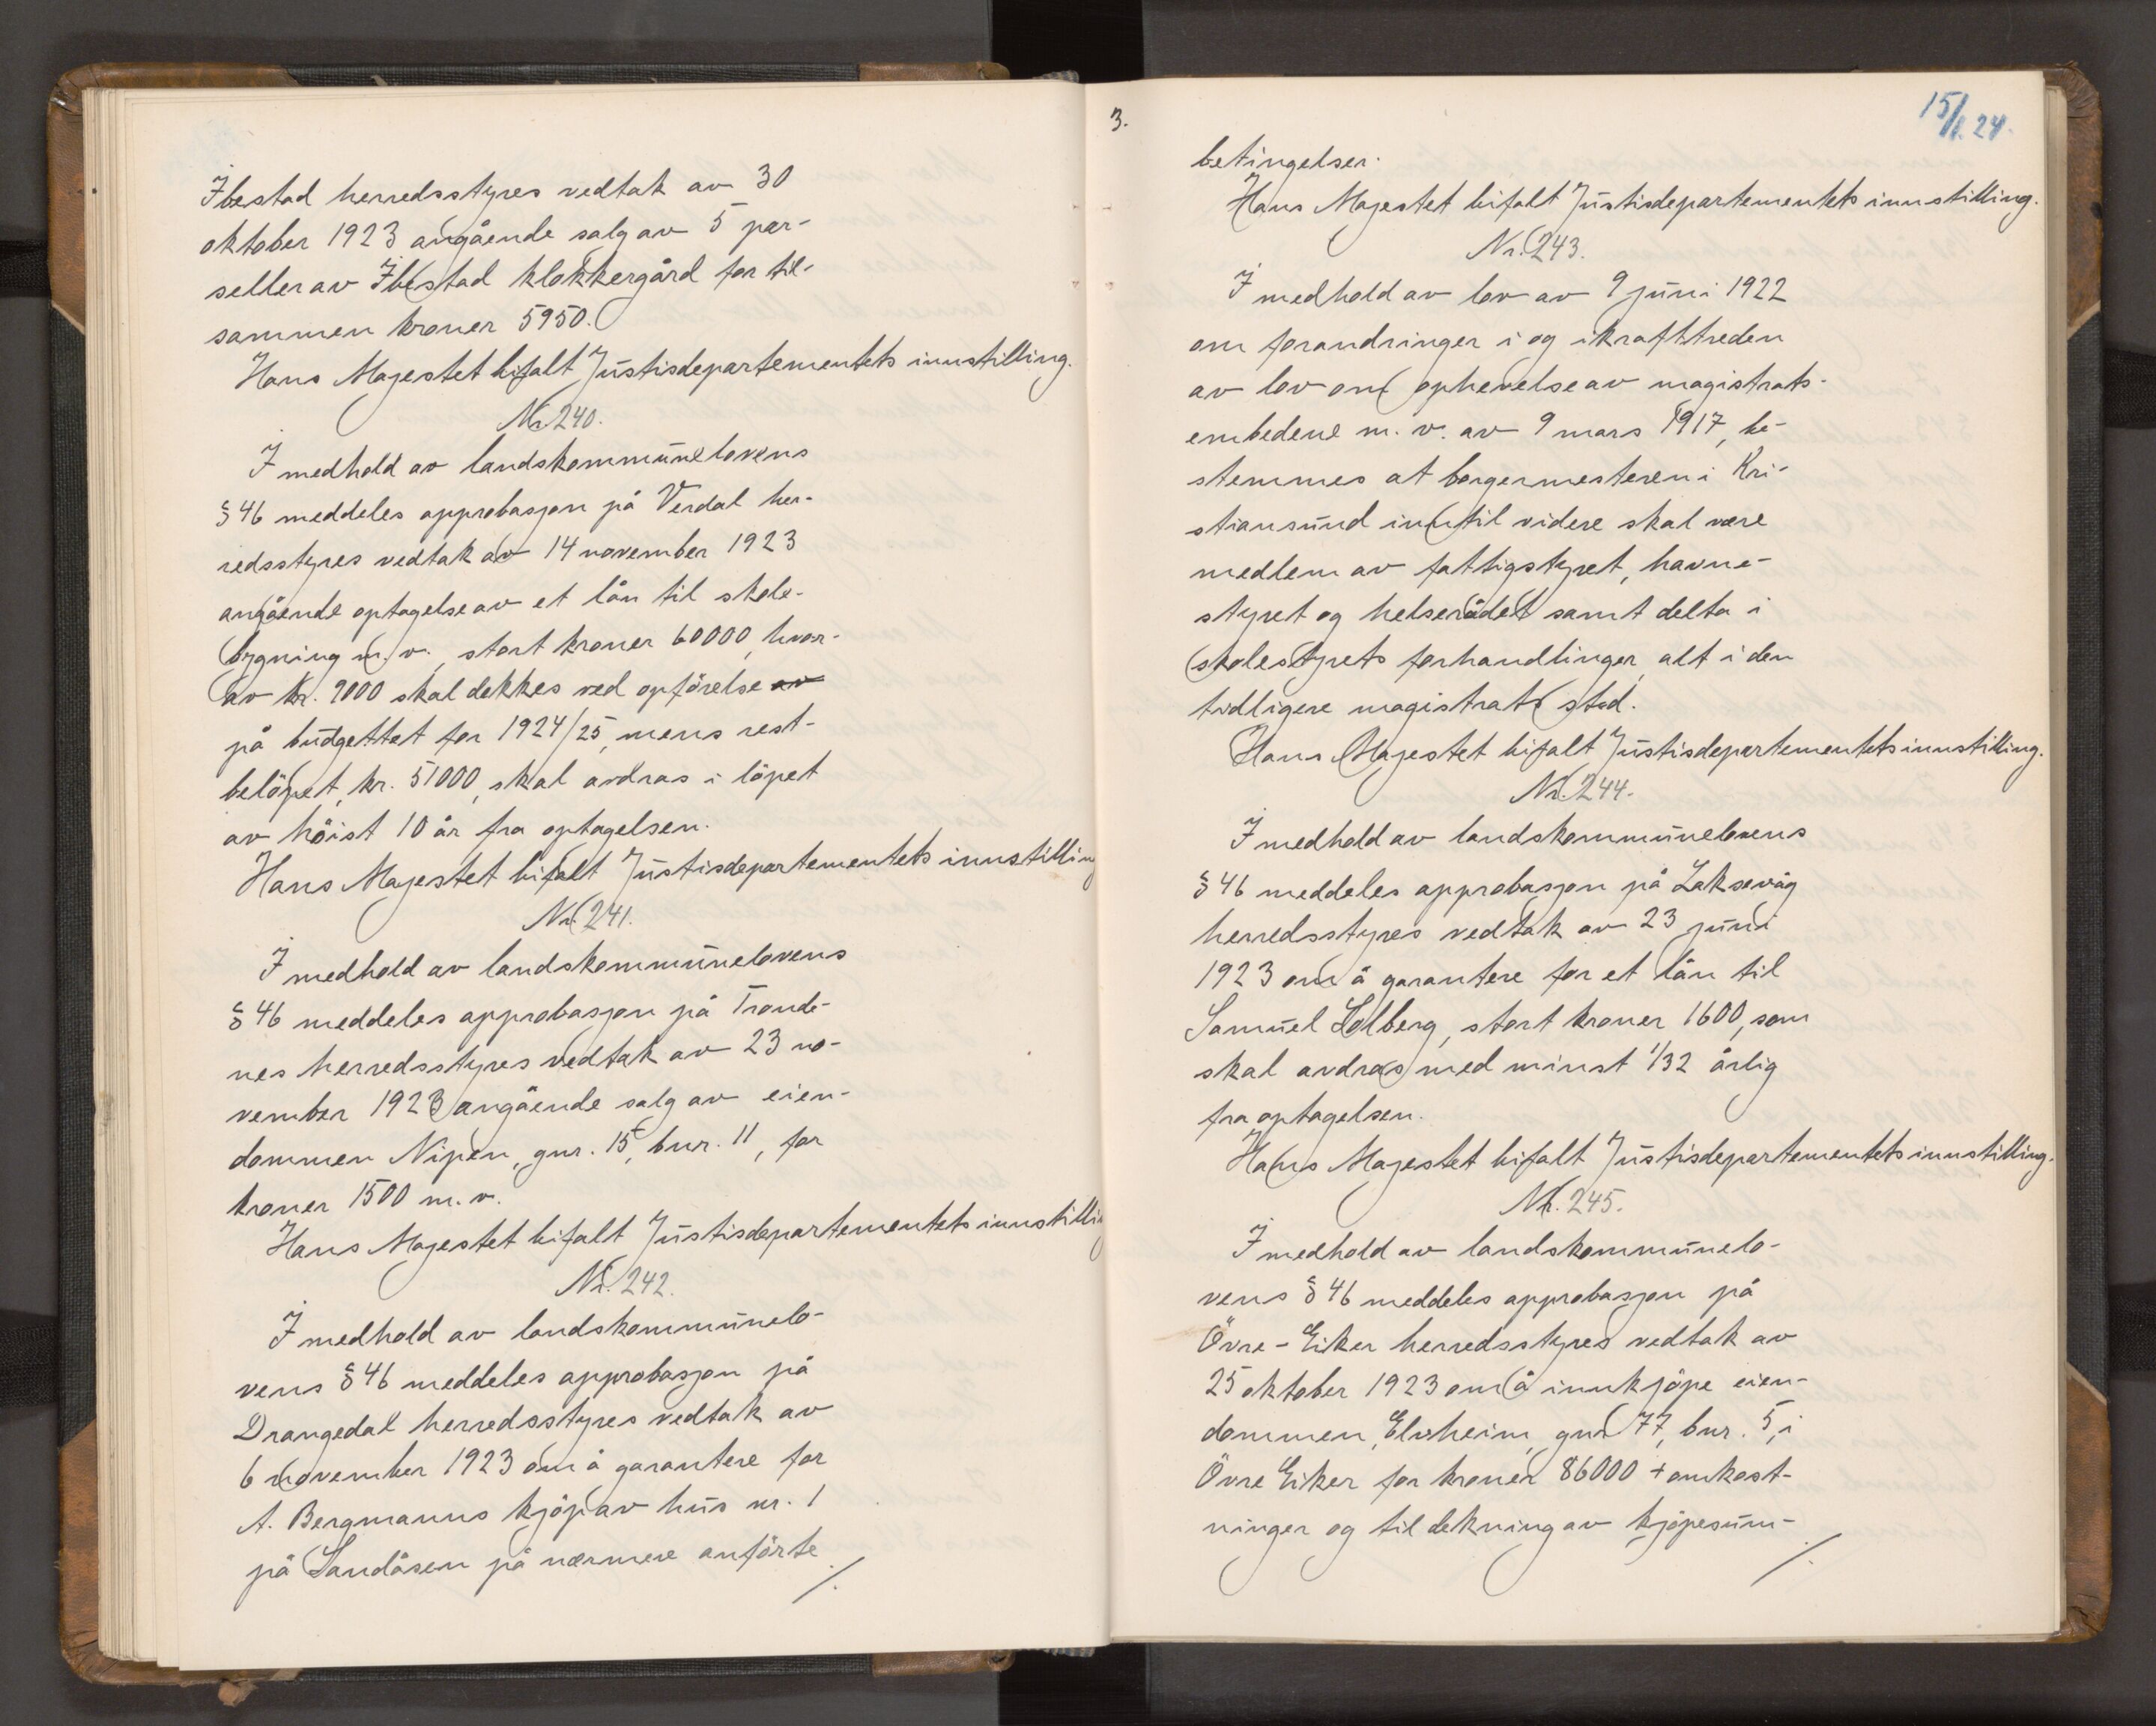 Ibestad herredsstyres vedtak av 30
oktober 1923 angående salg av 5 par-
seller av Ibestad klokkergård for til-
sammen kroner 5950.
Hans Majestet bifalt Justisdepartementets innstilling.
Nr. 240.
I medhold av landskommunelovens
§ 46 meddeles approbasjon på Verdal her-
redsstyres vedtak av 14 november 1923
angående optagelse av et lån til skole-
bygning m. v., stort kroner 60000, hvor-
av kr. 9000 skal dekkes ved opförelse av
på budgettet for 1924/25, mens rest-
belöpet, kr. 51000, skal avdras i löpet
av höist 10 år fra optagelsen.
Hans Majestet bifalt Justisdepartementets innstilling
Nr. 241.
I medhold av landskommunelovens
§ 46 meddeles approbasjon på Tronde-
nes herredsstyres vedtak av 23 no-
vember 1923 angående salg av eien-
dommen Nipen, gnr. 15, bnr. 11, for
kroner 1500 m. v.
Hans Majestet bifalt Justisdepartementets innstilling
Nr. 242.
I medhold av landskommunelo-
vens § 46 meddeles approbasjon på
Drangedal herredsstyres vedtak av
6 november 1923 om å garantere for
A. Bergmanns kjöp av hus nr. 1
på Sandåsen på nærmere anförte
./.
3.
15/2.24.
betingelser.
Hans Majestet bifalt Justisdepartementets innstilling.
Nr. 243.
I medhold av lov av 9 juni 1922
om forandringer i og ikrafttreden
av lov om ophevelse av magistrats-
embedene m. v. av 9 mars 1917, be-
stemmes at borgermesteren i Kri-
stiansund inntil videre skal være
medlem av fattigstyret, havne-
styret og helserådet samt delta i
skolestyrets forhandlinger, alt i den
tidligere magistrats sted.
Hans Majestet bifalt Justisdepartementets innstilling.
Nr. 244.
I medhold av landskommunelovens
§ 46 meddeles approbasjon på Laksevåg
herredsstyres vedtak av 23 juni
1923 om å garantere for et lån til
Samuel Solberg, stort kroner 1600, som
skal avdras med minst 1/32 årlig
fra optagelsen.
Hans Majestet bifalt Justisdepartementets innstilling.
Nr. 245.
I medhold av landskommunelo-
vens § 46 meddeles approbasjon på
Övre-Eiker herredsstyres vedtak av
25 oktober 1923 om å innkjöpe eien-
dommen, Elvheim, gnr. 77, bnr. 5, i
Övre Eiker for kroner 86000 + omkost-
ninger og til dekning av kjöpesum-
./.